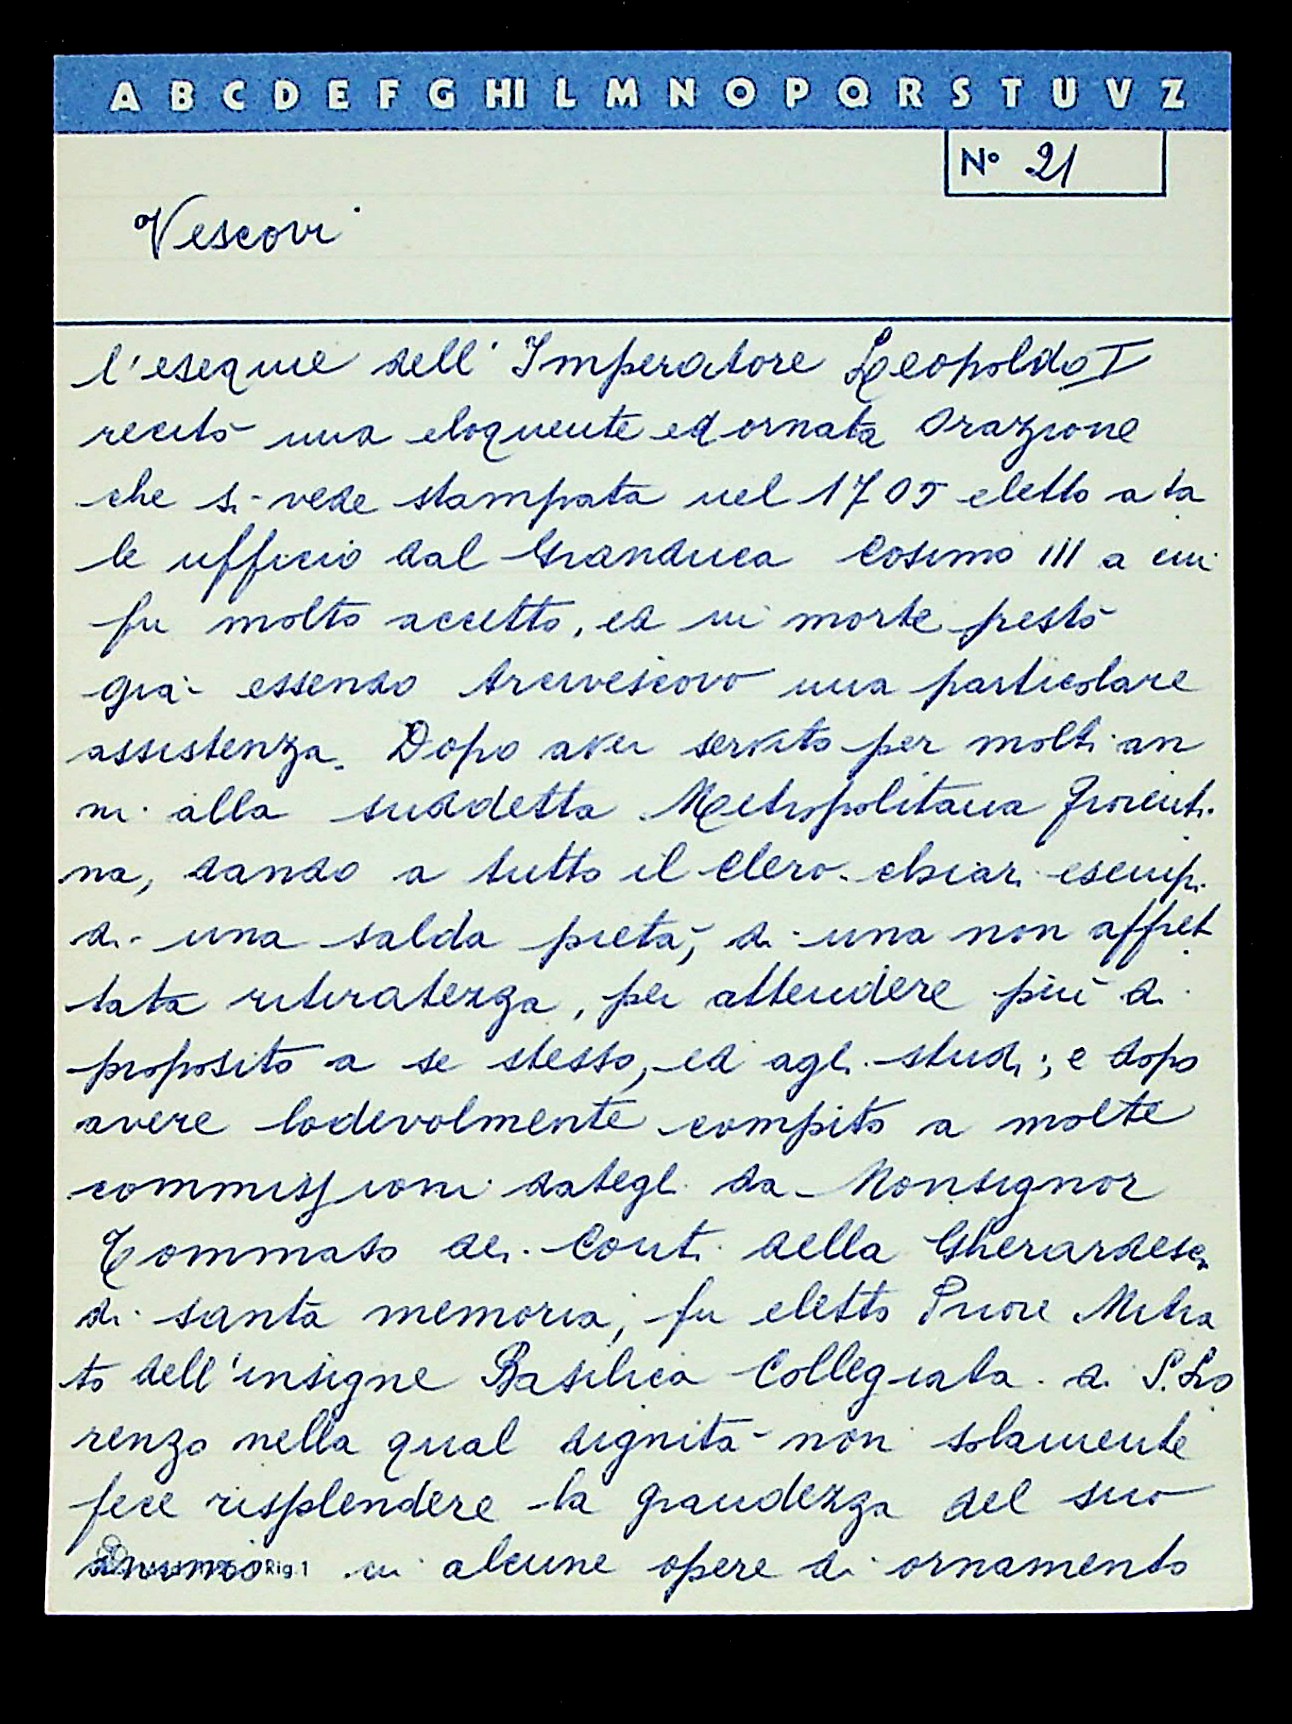 A B C D E F G HI L M N O P Q R S T U V Z
N° 21
Vescovi
l'esequie dell'Imperatore Leopoldo I
recitò una eloquente ed ornata Orazione
che si vede stampata nel 1705 eletto a ta
le ufficio dal Granduca Cosimo III a cui
fu molto accetto, ed in morte prestò
già essendo Arcivescovo una particolare
assistenza. Dopo aver servito per molti an
ni alla suddetta Metropolitana Fiorenti
na, dando a tutto il Clero chiari esempi
di una salda pietà, di una non affret
tata ritiratezza, per attendere più di
proposito a se stesso, ed agli studi; e dopo
avere lodevolmente compito a molte
commissioni dategli da Monsignor
Tommaso dei Conti della Gherardesca
di santa memoria, fu eletto Priore Mitra
to dell'insigne Basilica Collegiata di S. Lo
renzo nella qual dignità non solamente
fece risplendere la grandezza del suo
animo in alcune opere di ornamento
Rig. 1